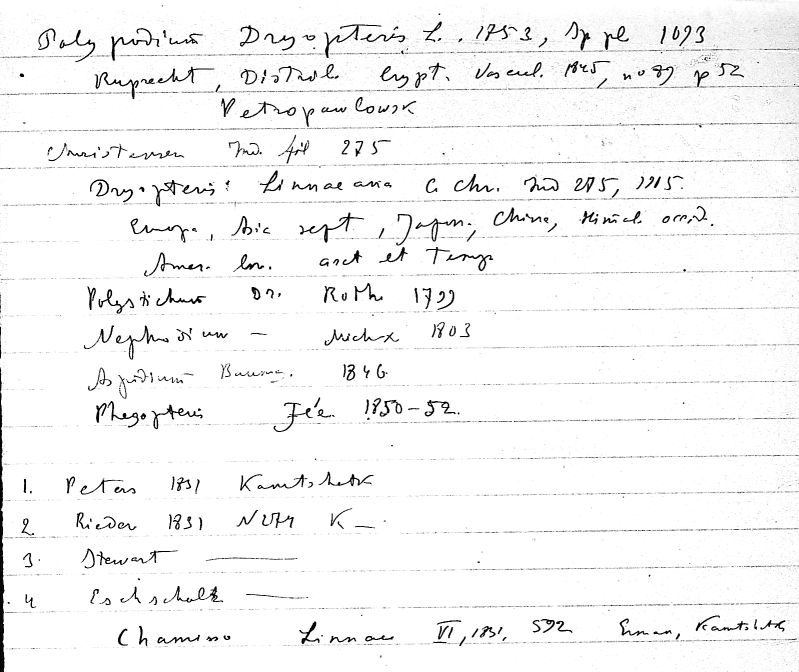 Polypodium Dryopteris L. 1753, Sp pl 1093
Ruprecht, Distrib. Crypt. Vascul. 1845, no 89 p 52
Petropawlowsk
Christensen Ind. fil 275
Dryopteris: Linnaeana C. Chr. Ind 275, 1905.
Europa, Asia sept, Japon., China, Himal. occid.
Amer. bor. arct et Temp
Polystichum Dr. Roth. 1799
Nephrodium — Michx 1803
Aspidium Baumg. 1846
Phegopteris Fée. 1850-52.
1. Peters 1831 Kamtshatk
2 Rieder 1831 N 274 K —
3. Stewart ———
4 Eschscholtz ———
Chamisso Linnaea VI, 1831, 592 Erman, Kamtshatk